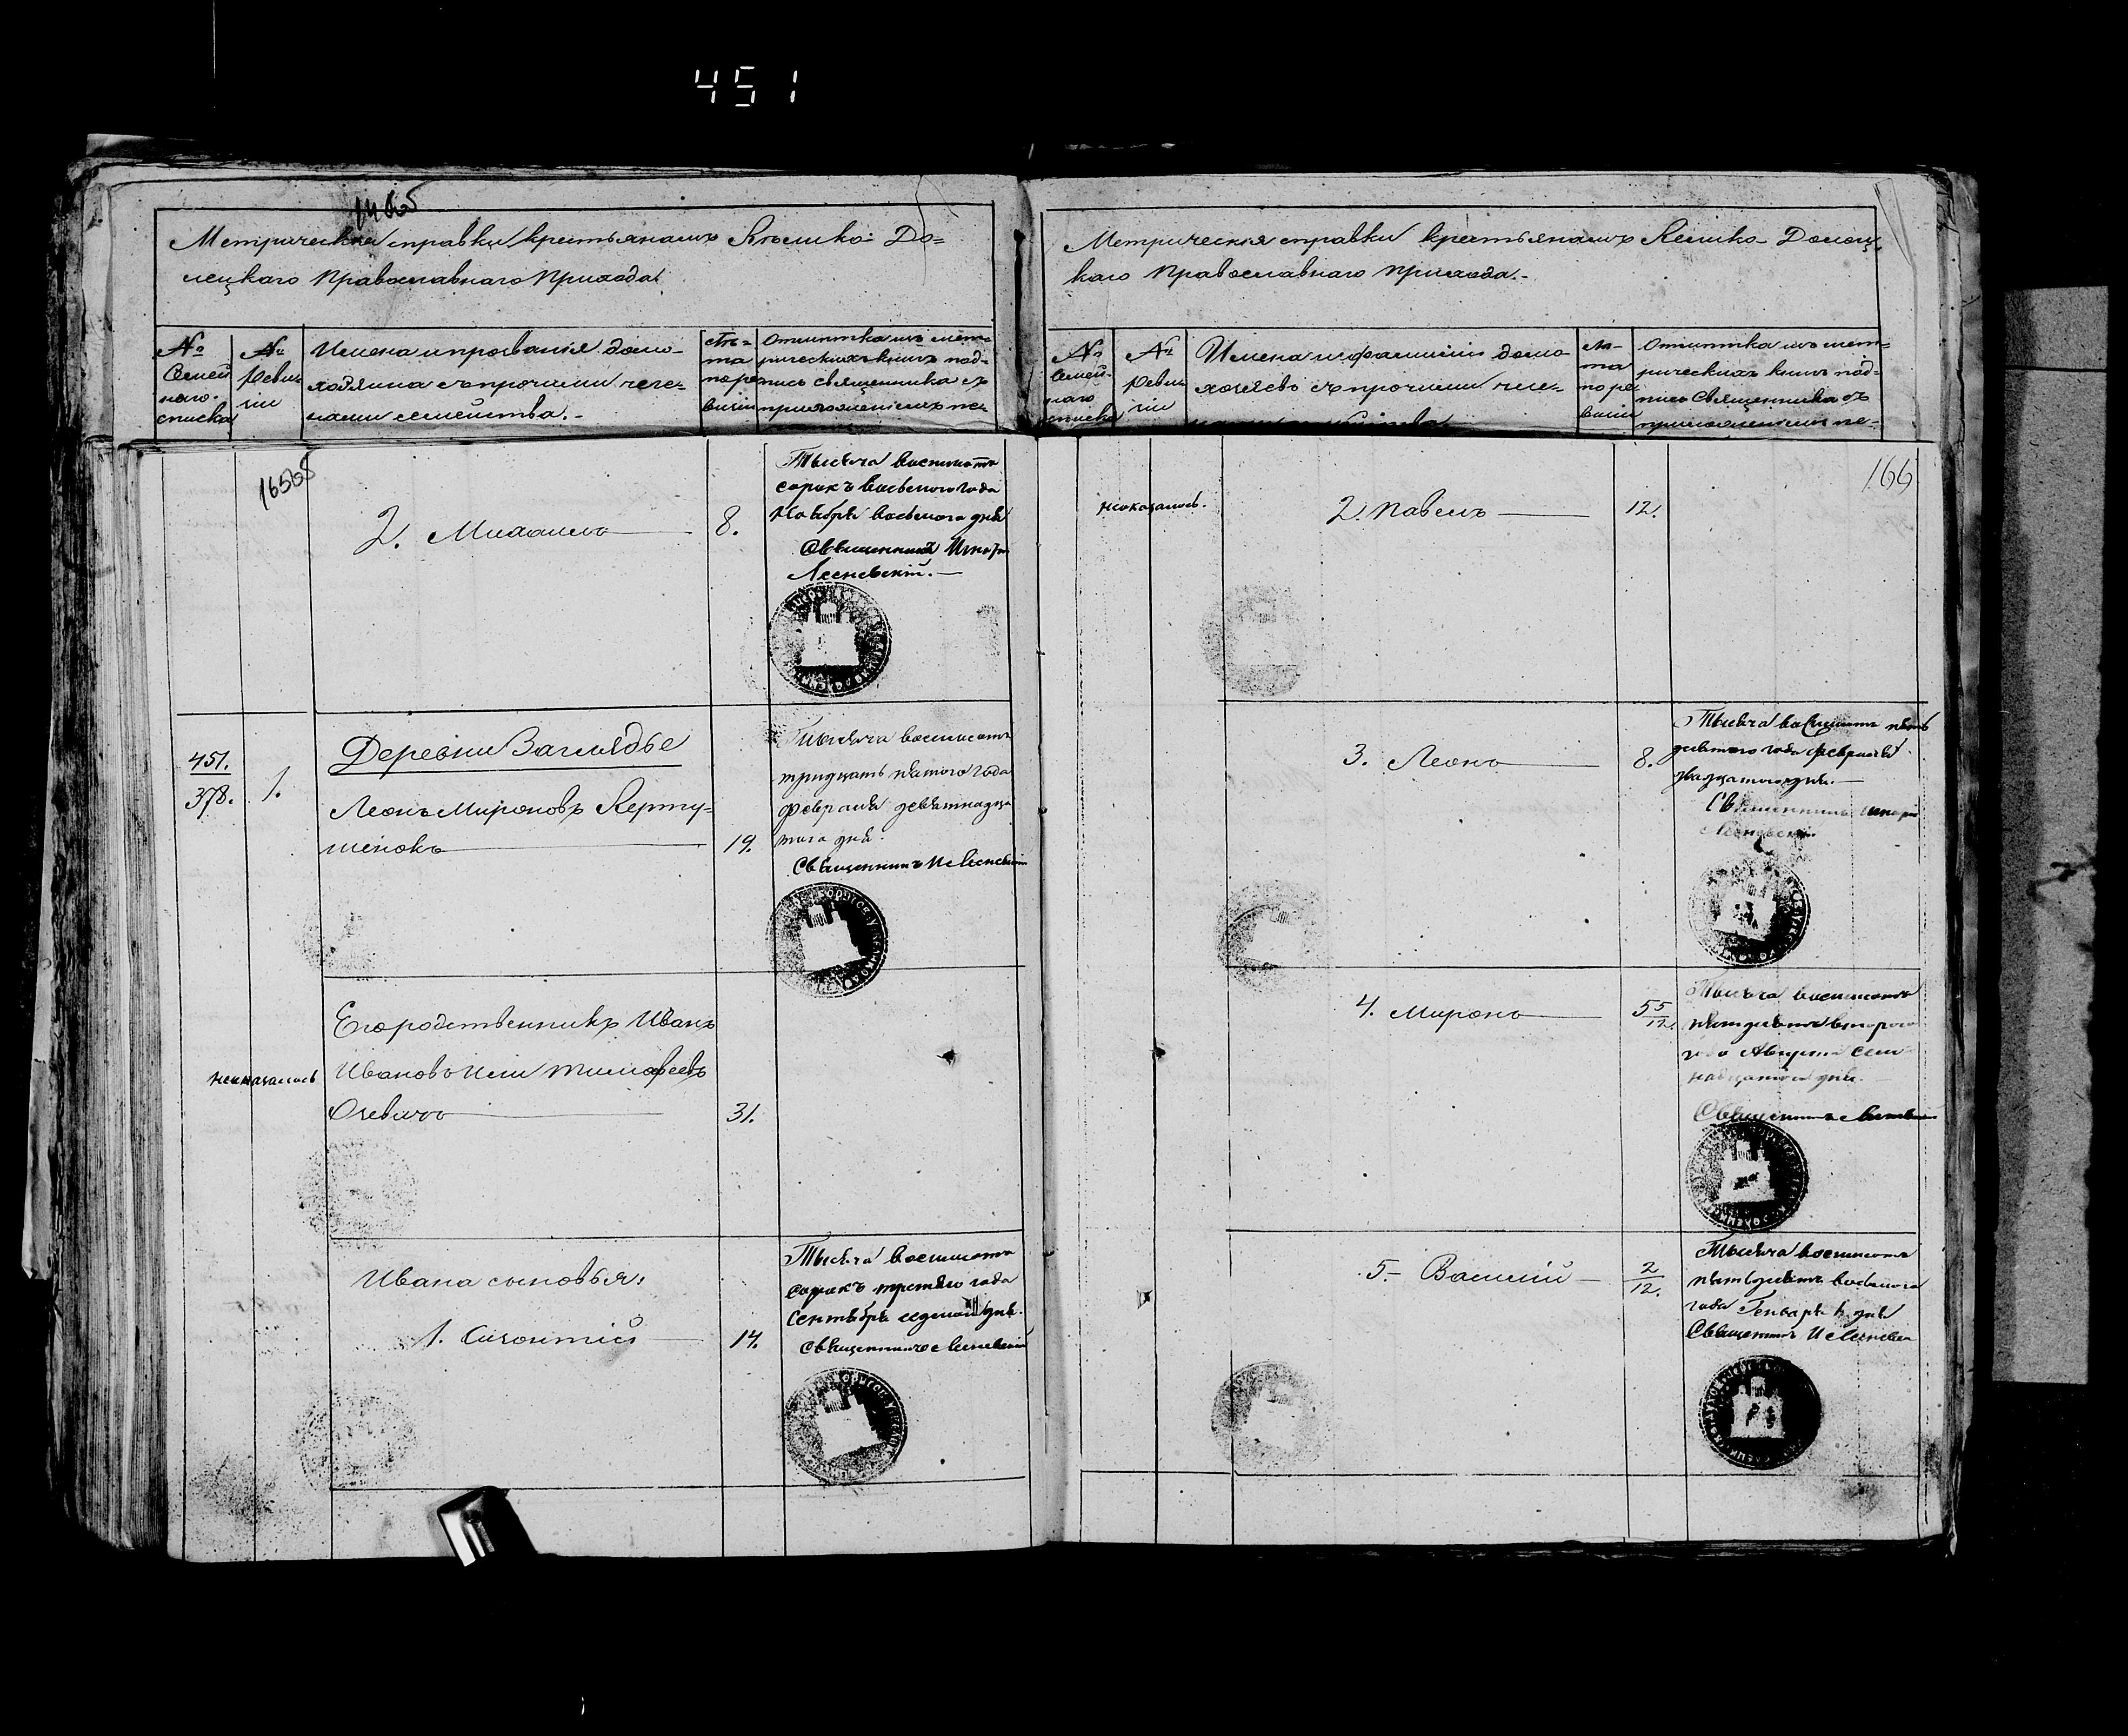 451
Метрическія справки крестьянамъ Велико-До=
лецкаго Православнаго Прихода
№
Семей
наго
списка
№
Реви
зіи
Имена и прозванія домо-
хозяина съ прочими чле-
нами семейства.-
Лѣ=
та
по ре
визіи
Отмѣтка изъ мет-
рическихъ книгъ под-
пись священника съ
приложеніемъ пе-
2. Михаилъ
8.
Тысяча восемьсотъ
сорокъ восьмого года
Ноября восьмого дня
Священникъ
Лесневскій.-
451.
378.
1.
Деревни Заглядье
Леонъ Мироновъ
шенокъ
19.
Тысяча восемьсотъ
тридцать пятого года
Февраля девятнадца
таго дня
Священникъ И Лесневскій
неоказалось
Его родственникъ Иванъ
Ивановъ или Тимофеевъ
31.
Ивана сыновья:
1.
14.
Тысяча восемьсотъ
сорокъ третьяго года
Сентября седьмаго дня.
Священникъ Лесневскій
Метрическія справки крестьянамъ Велико-Долец
каго Православнаго прихода.-
№
Семей-
наго
списка
№
Реви
зіи
Имена и фамиліи домо
хозяевъ съ прочими чле-
Лѣ-
та
по ре
визіи
Отмѣтка изъ мет-
рическихъ книгъ под-
пись Священника съ
приложеніемъ пе-
166
неоказалось.
2. Павелъ
12.
3. Леонъ
8.
Тысяча восемьсотъ пять
десятого года Февраля
двадцатого дня.-
Священникъ
Лесневскій
4. Миронъ
5 5/12.
Тысяча восемьсотъ
пятьдесятъ второго
года Августа сем
надцатого дня.
Священникъ Лесневскій
5.- Василій
2/12.
Тысяча восемьсотъ
пятьдесятъ восьмого
года Генваря 1. дня
Священникъ И Лесневск